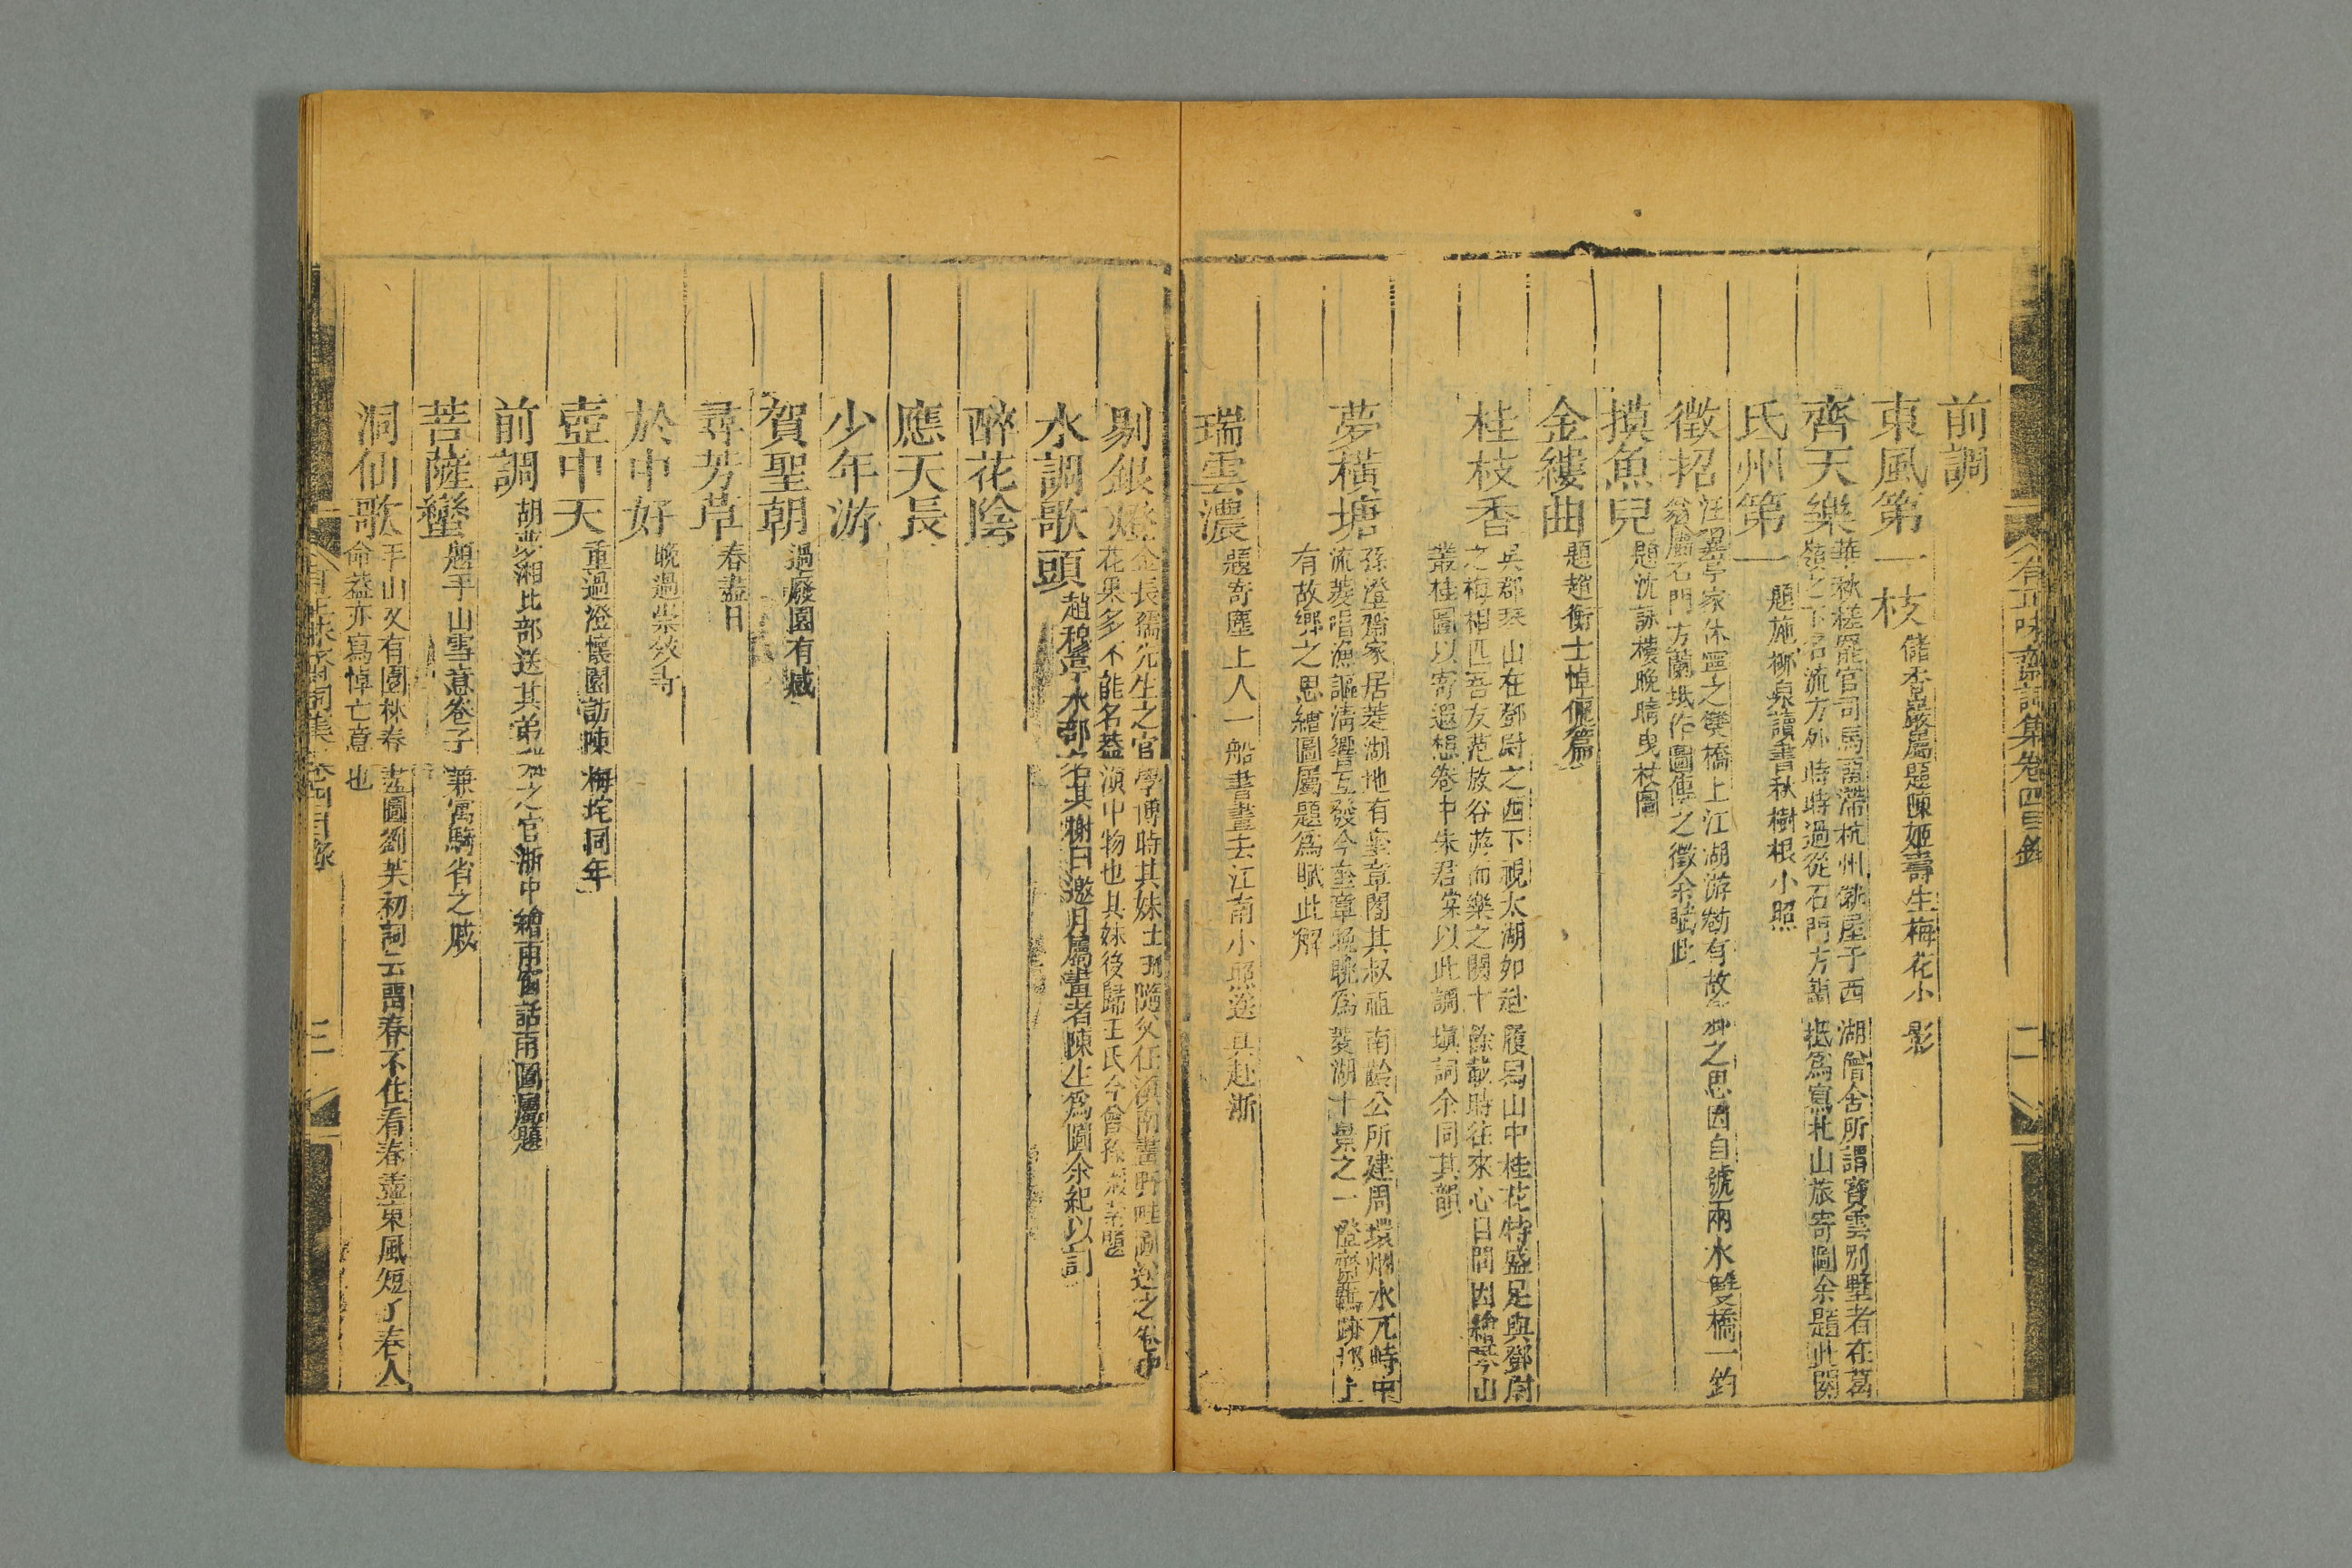 有正味齋詞集卷四目錄
二
前調
東風第一枝 儲杏巖屬題陳姬壽生梅花小影
齊天樂 華秋槎罷官司馬留滯杭州僦屋于西湖僧舍所謂寶雲別墅者在葛
嶺之下名流方外時時過從石門方蘭坻為寫北山旅寄圖余題此闋
氐州第一 題施柳泉讀書秋樹根小照
徵招 汪墨亭家休寧之雙橋上江湖游勌有故鄉之思因自號兩水雙橋一釣
翁屬石門方蘭坻作圖傳之徵余賦此
摸魚兒 題沈詠樓晚晴曳杖圖
金縷曲 題趙衡士悼儷篇
桂枝香 吳郡琴山在鄧尉之西下視太湖如履舄山中桂花特盛足與鄧尉
之梅相匹吾友范放谷游而樂之閱十餘載時往來心目間因繪琴山
叢桂圖以寄遐想卷中朱君棠以此調填詞余同其韻
夢橫塘 孫澄齋家居菱湖地有奎章閣其叔祖南齡公所建周環烟水兀峙中
流菱唱漁謳清響互發今奎章晚眺為菱湖十景之一澄齋羈跡郡上
有故鄉之思繪圖屬題為賦此解
瑞雲濃 題寄塵上人一船書畫去江南小照送其赴浙
剔銀燈 金長孺先生之官學博時其妹士珊隨父任滇南畫野畦蔬送之卷中
花果多不能名蓋滇中物也其妹後歸王氏今曾孫屬題
水調歌頭 趙穆亭水部名其榭曰邀月屬畫者陳生為圖余紀以詞
醉花陰
應天長
少年游
賀聖朝 過廢園有感
尋芳草 春盡日
於中好 晚過崇效寺
壺中天 重過澄懷園訪陳梅垞同年
前調 胡黃湘比部送其弟之官浙中繪雨窗話雨圖屬題
菩薩蠻 題平山雪意卷子兼寓騎省之感
洞仙歌 平山又有園林春盡圖劉芙初詞云留春不住看春盡東風短了春人
命蓋亦寫悼亡意也
有正味齋詞集卷四目錄
三